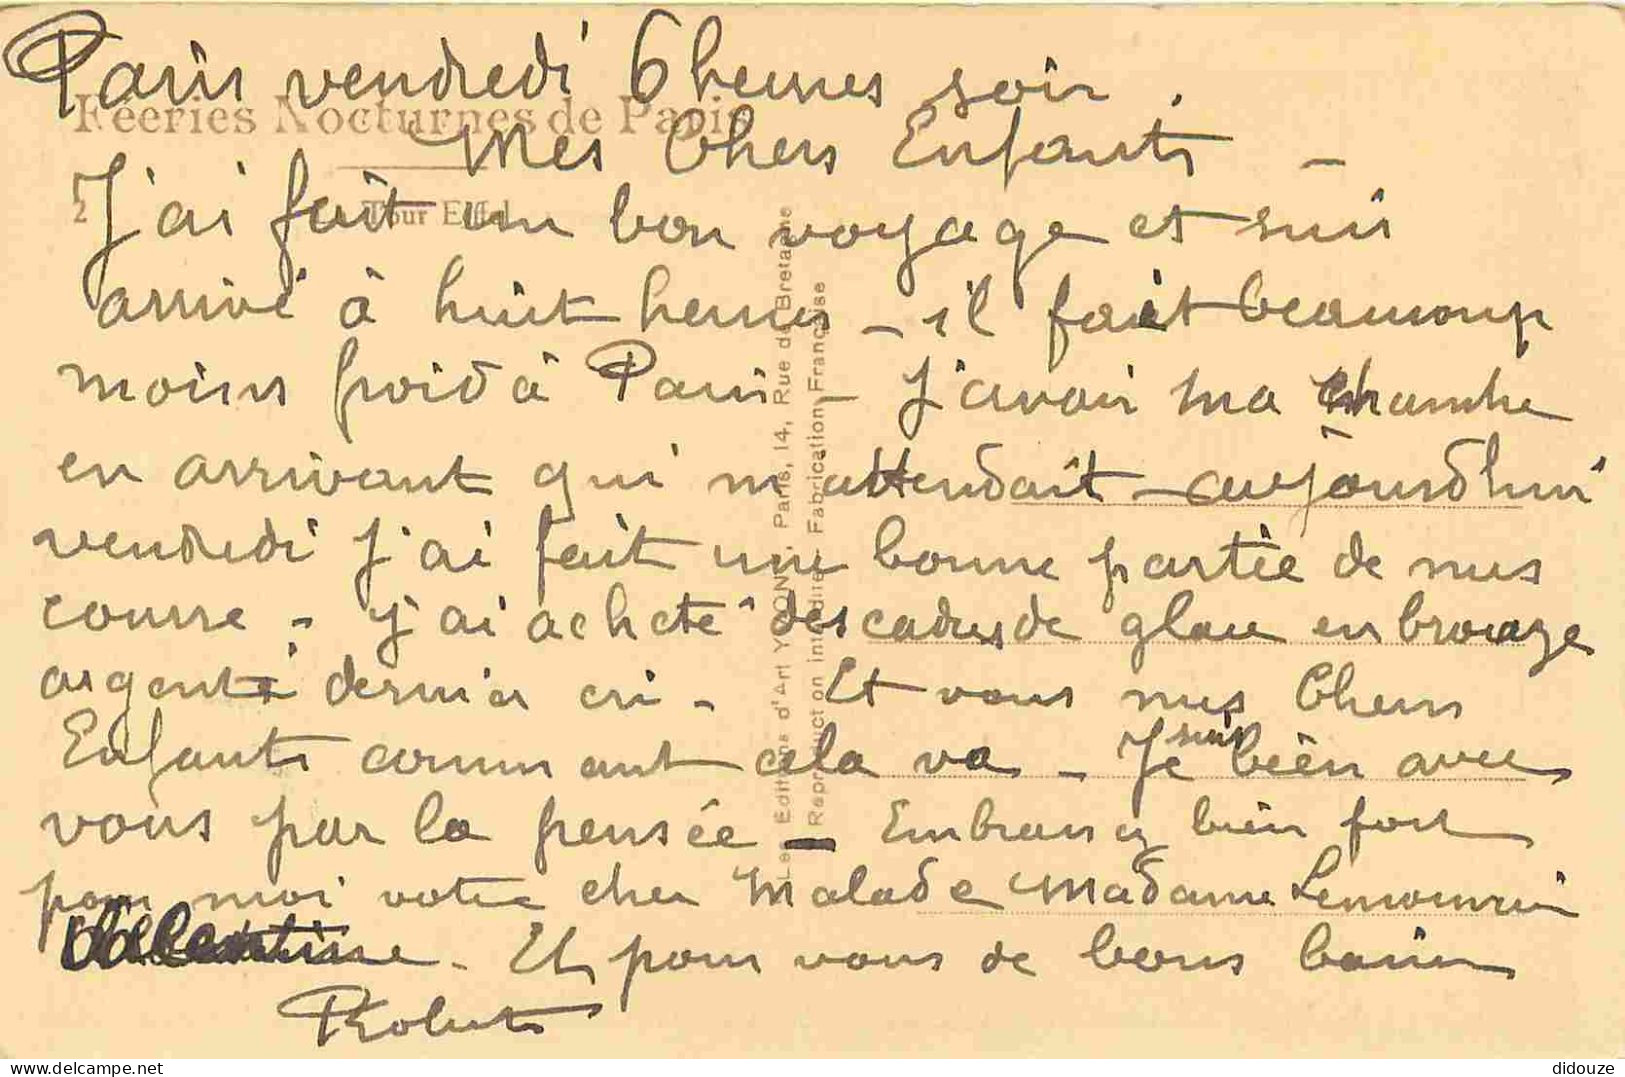 Paris vendredi 6 heures soir.
Féeries Nocturnes de Paris
Mes Chers Enfants -
2 Tour Eiffel
J'ai fait un bon voyage et suis
arrivé à huit heures - il fait beaucoup
moins froid à Paris - J'avais ma chambre
en arrivant qui m'attendait - aujourd'hui
vendredi j'ai fait une bonne partie de mes
course - j'ai acheté des cadres de glace en bronze
argenté dernier cri - Et vous mes Chers
Enfants comment cela va - Je suis bien avec
vous par la pensée - Embrassez bien fort
pour moi votre cher Malade Madame
Valentine. Et pour vous de bons baisers
Robert
Les Editions d'Art YVON, Paris, 14, Rue de Bretagne
Reproduction interdite. Fabrication Française
didouze
www.delcampe.net